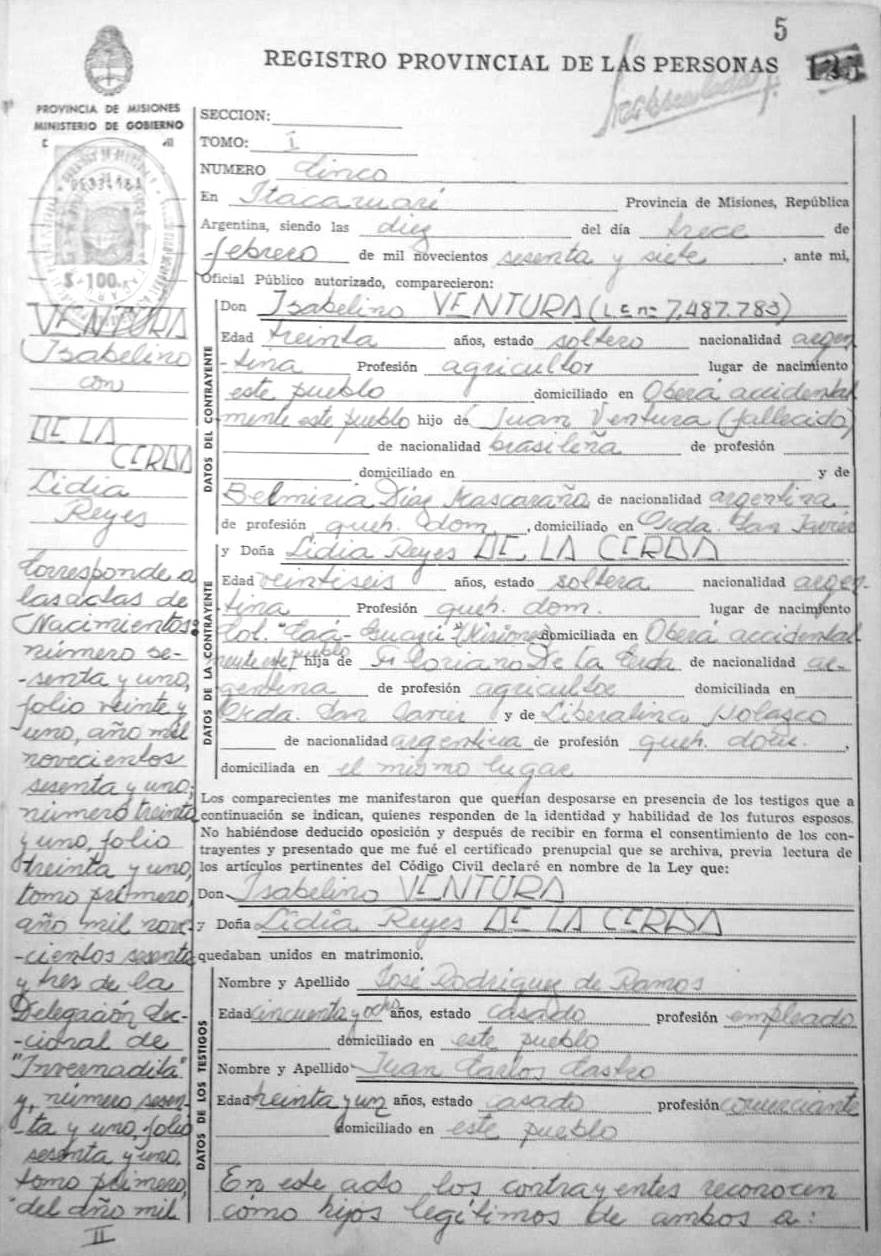 5
REGISTRO PROVINCIAL DE LAS PERSONAS
PROVINCIA DE MISIONES
MINISTERIO DE GOBIERNO
$ 100
SECCION:
TOMO: I
NUMERO Cinco
En Itacaruaré Provincia de Misiones, República
Argentina, siendo las diez del día trece de
febrero de mil novecientos sesenta y siete, ante mi,
Oficial Público autorizado, comparecieron:
DATOS DEL CONTRAYENTE
Don Isabelino VENTURA (L.E nº 7,487.783)
Edad treinta años, estado soltero nacionalidad argen
-tina Profesión agricultor lugar de nacimiento
este pueblo domiciliado en Oberá accidental
mente este pueblo hijo de Juan Ventura (fallecido)
de nacionalidad brasileña de profesión
domiciliado en y de
Belmiria Díaz Mascaraño de nacionalidad argentina
de profesión queh. dom, domiciliado en Crda. San Javier
DATOS DE LA CONTRAYENTE
y Doña Lidia Reyes DE LA CERDA
Edad veintiseis años, estado soltera nacionalidad argen-
tina Profesión queh. dom. lugar de nacimiento
Col. (Misiones domiciliada en Oberá accidental
mente este pueblo hija de Floriano De la Cerda de nacionalidad ar-
gentina de profesión agricultor domiciliada en
Crda. San Javier y de Liberalina Nolasco
de nacionalidad argentina de profesión queh. dom.,
domiciliada en el mismo lugar
Los comparecientes me manifestaron que querían desposarse en presencia de los testigos que a
continuación se indican, quienes responden de la identidad y habilidad de los futuros esposos.
No habiéndose deducido oposición y después de recibir en forma el consentimiento de los con-
trayentes y presentado que me fué el certificado prenupcial que se archiva, previa lectura de
los artículos pertinentes del Código Civil declaré en nombre de la Ley que:
Don Isabelino VENTURA
y Doña Lidia Reyes DE LA CERDA
quedaban unidos en matrimonio.
DATOS DE LOS TESTIGOS
Nombre y Apellido José Rodriguez de Ramos
Edad cincuenta y ocho años, estado casado profesión empleado
domiciliado en este pueblo
Nombre y Apellido Juan Carlos Castro
Edad treinta y un años, estado casado profesión comerciante
domiciliado en este pueblo
En este acto los contrayentes reconocen
cómo hijos legítimos de ambos a:
VENTURA
Isabelino
con
DE LA
CERDA
Lidia
Reyes
Corresponde a
las actas de
Nacimientos:
número se-
-senta y uno,
folio veinte y
uno, año mil
novecientos
sesenta y uno;
número treinta
y uno, folio
treinta y uno,
tomo primero,
año mil nove
-cientos sesenta
y tres de la
Delegación Sec-
-cional de
"Invernadita"
y, número sesen-
-ta y uno, folio
sesenta y uno,
tomo primero,
del año mil
II